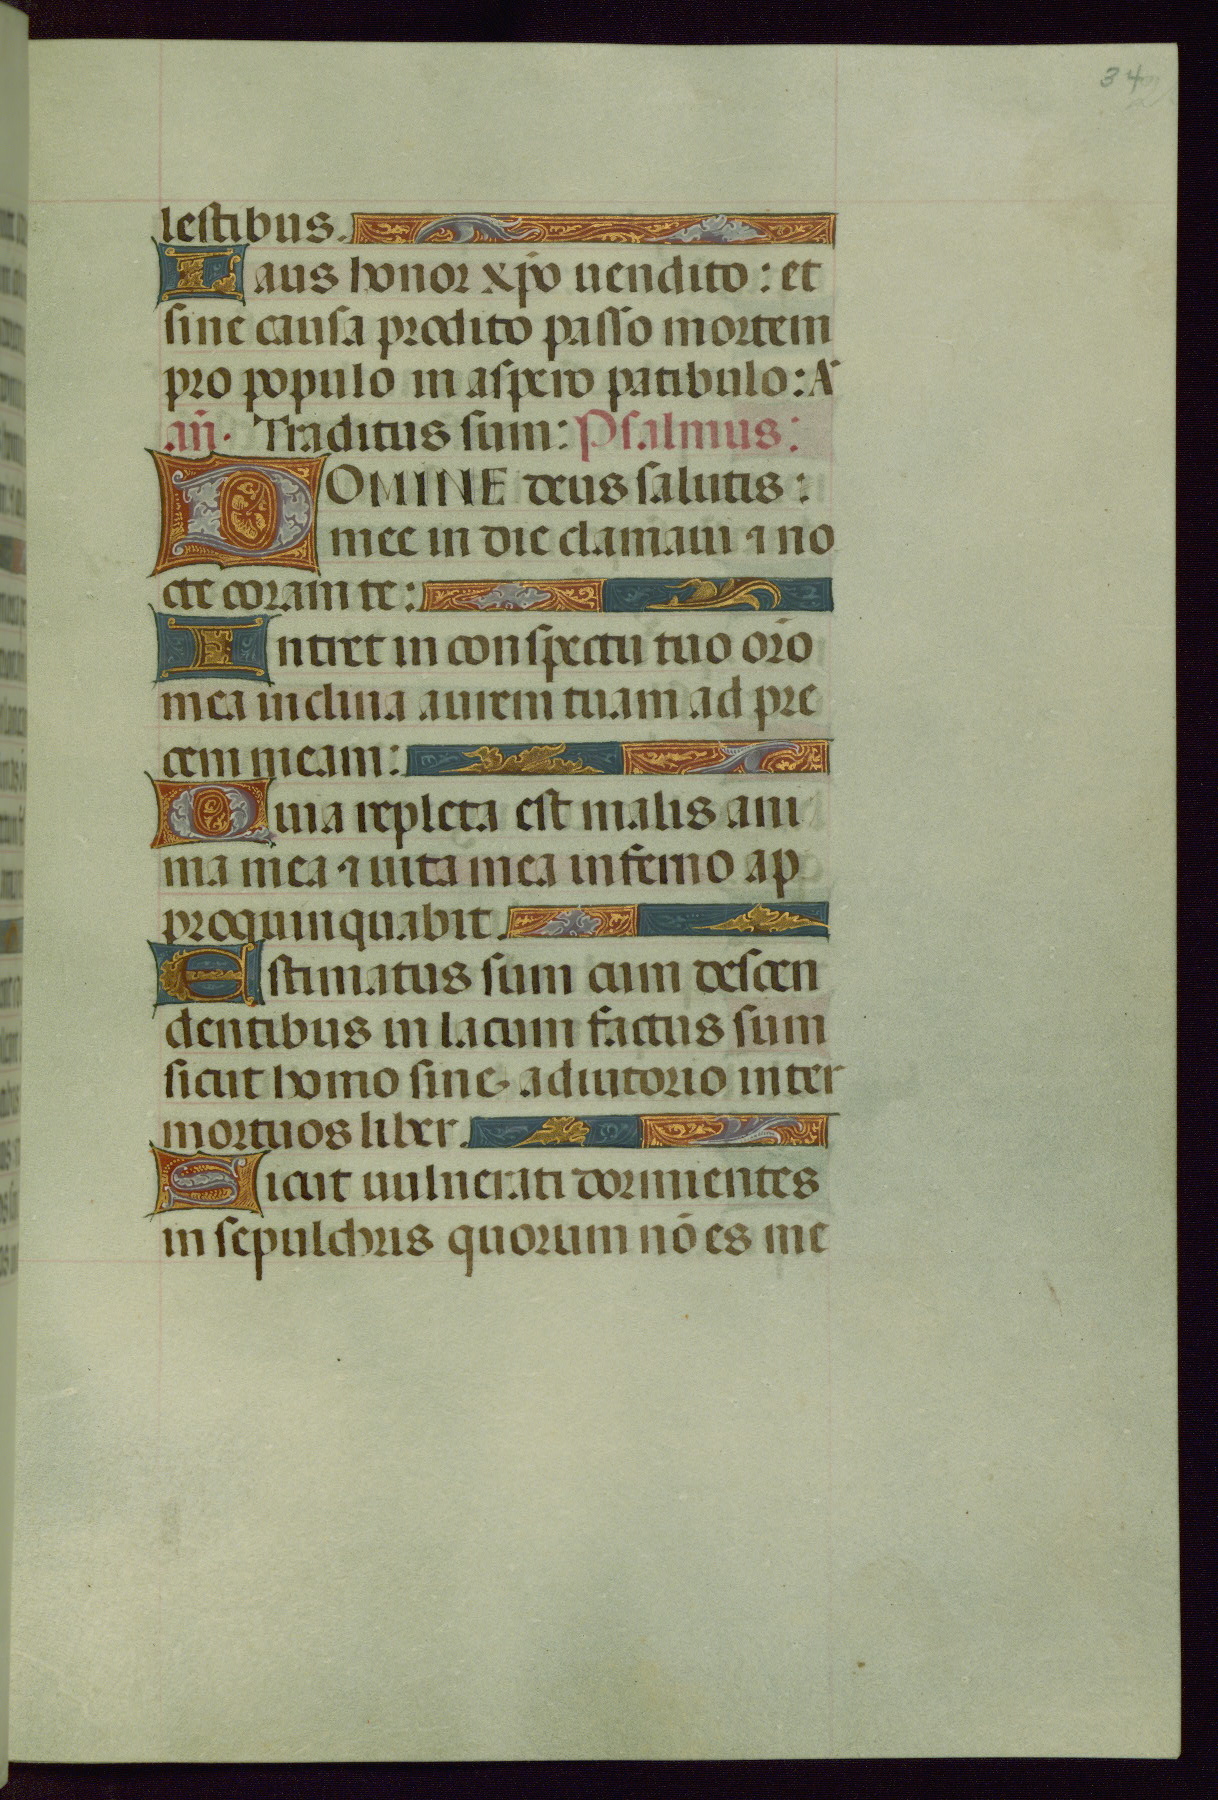 34
lestibus.
Laus honor xp̄o uendito : et
sine causa prodito passo mortem
pro populo in aspero patibulo : A
an̄. Traditus sum : Psalmus :
DOMINE deus salutis :
mee in die clamaui ⁊ no
cte coram te :
Intret in conspectu tuo or̄o
mea inclina aurem tuam ad pre
cem meam :
Quia repleta est malis ani
ma mea ⁊ uita mea inferno ap
proquinquabit.
Estimatus sum cum descen
dentibus in lacum factus sum
sicut homo sine adiutorio inter
mortuos liber.
Sicut uulnerati dormientes
in sepulchris quorum nō es me